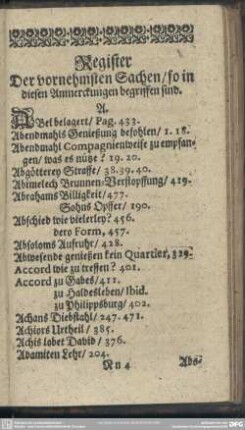 Register
Der vornehmsten Sachen/ so in
diesen Anmerckungen begriffen sind.
A.
ABel belagert/ Pag. 433.
Abendmahls Geniessung befohlen/ 1. 18.
Abendmahl Compagnienweise zu empfan-
gen/ was es nütze? 19. 20.
Abgötterey Straffe/ 38. 39. 40.
Abimelech Brunnen-Verstopffung/ 419.
Abrahams Billigkeit/ 477.
Sohns Opffer/ 190.
Abschied wie vielerley? 456.
dero Form, 457.
Absoloms Auffruhr/ 428.
Abwesende geniessen kein Quartier, 329.
Accord wie zu treffen? 401.
Accord zu Gabes/ 411.
zu Haldesleben/ Ibid.
zu Philippsburg/ 402.
Achans Diebstahl/ 247. 471.
Achiors Urtheil/ 385.
Achis lobet David/ 376.
Adamiten Lehr/ 204.
Nn 4